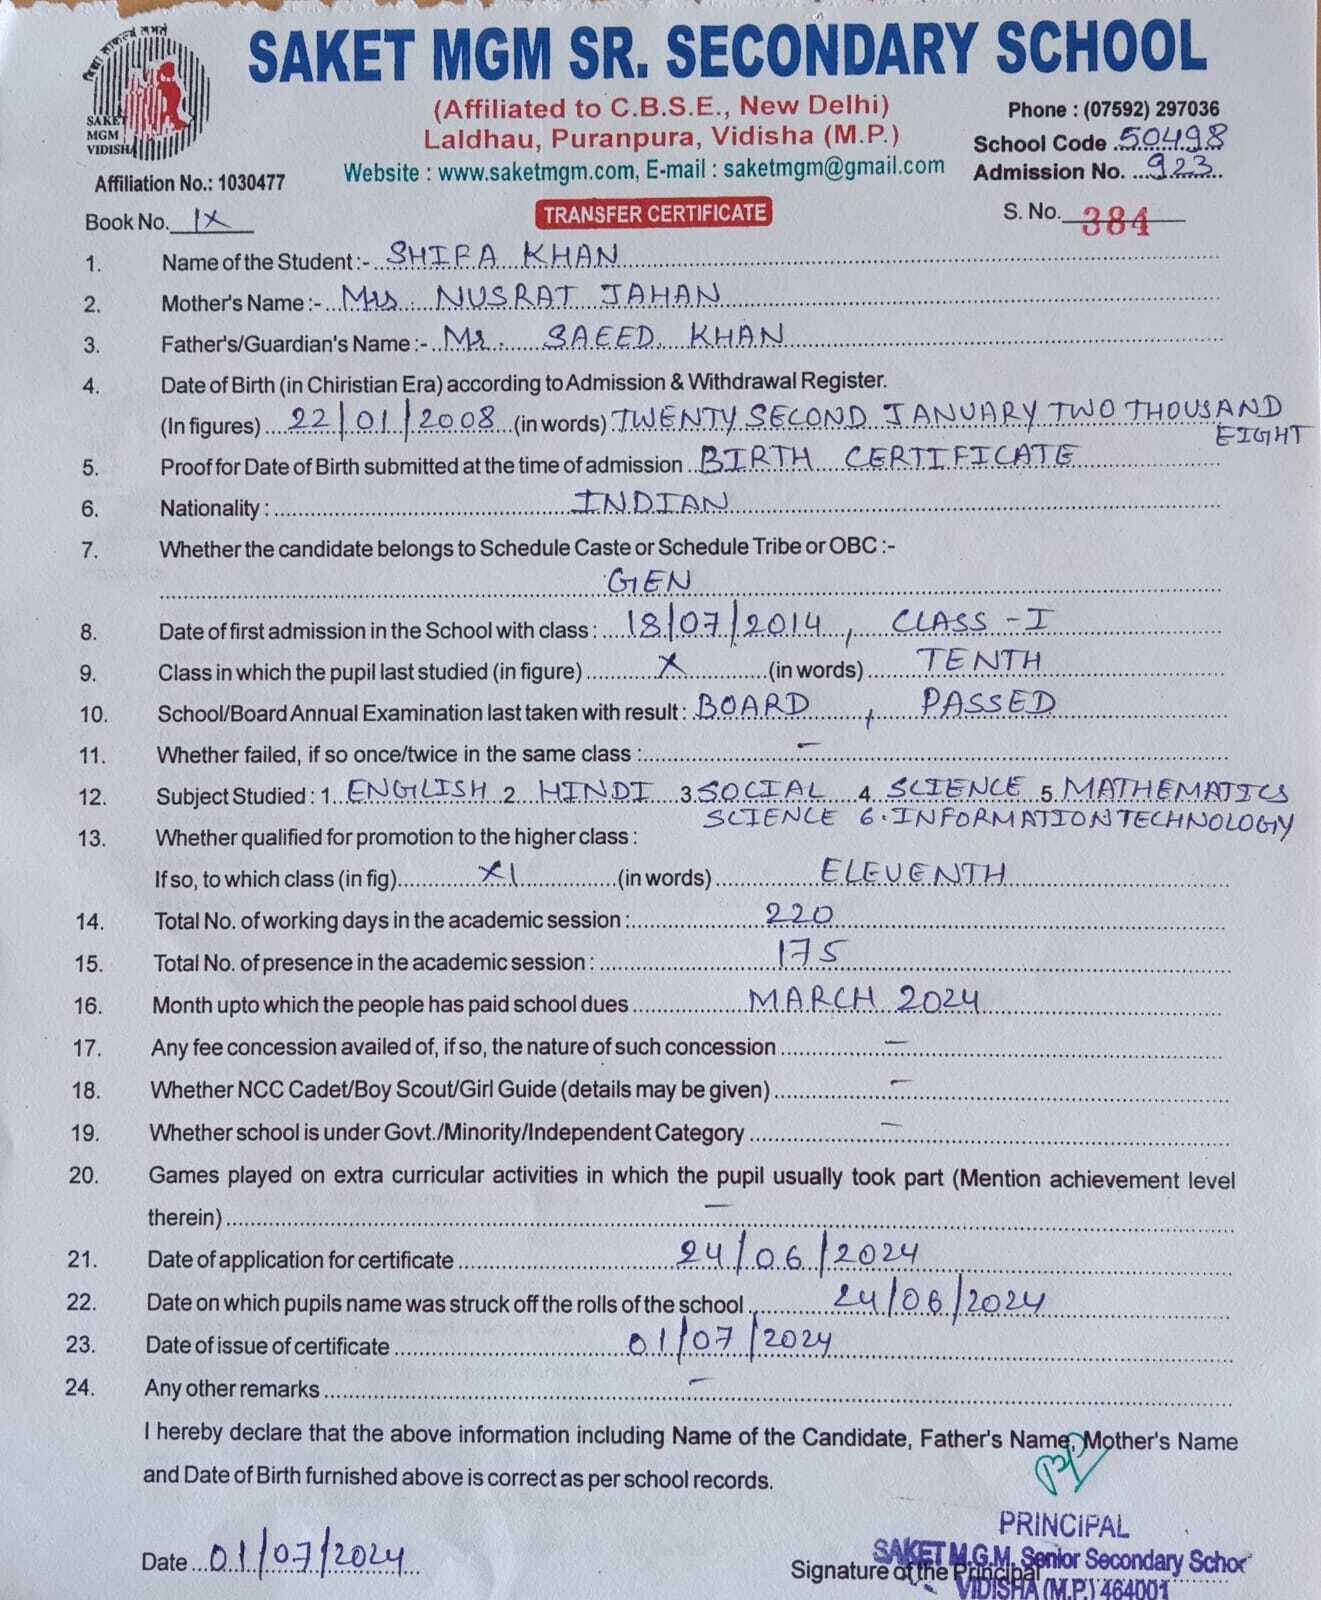 SAKET MGM SR. SECONDARY SCHOOL
SAKET
MGM
VIDISHA
(Affiliated to C.B.S.E., New Delhi)
Laldhau, Puranpura, Vidisha (M.P.)
Website : www.saketmgm.com, E-mail : saketmgm@gmail.com
Phone : (07592) 297036
School Code .50498
Admission No. ...923
Affiliation No.: 1030477
Book No. IX
TRANSFER CERTIFICATE
S. No. 384
1. Name of the Student :- SHIFA KHAN
2. Mother's Name :- Mrs. NUSRAT JAHAN
3. Father's/Guardian's Name :- Mr. SAEED KHAN
4. Date of Birth (in Chiristian Era) according to Admission & Withdrawal Register.
(In figures) 22/01/2008 (in words) TWENTY SECOND JANUARY TWO THOUSAND
EIGHT
5. Proof for Date of Birth submitted at the time of admission BIRTH CERTIFICATE
6. Nationality : INDIAN
7. Whether the candidate belongs to Schedule Caste or Schedule Tribe or OBC :-
GEN
8. Date of first admission in the School with class : 18/07/2014, CLASS - I
9. Class in which the pupil last studied (in figure) X (in words) TENTH
10. School/Board Annual Examination last taken with result : BOARD , PASSED
11. Whether failed, if so once/twice in the same class : -
12. Subject Studied : 1 ENGLISH 2 HINDI 3 SOCIAL 4 SCIENCE 5 MATHEMATICS
SCIENCE 6. INFORMATION TECHNOLOGY
13. Whether qualified for promotion to the higher class :
If so, to which class (in fig) XI (in words) ELEVENTH
14. Total No. of working days in the academic session : 220
15. Total No. of presence in the academic session : 175
16. Month upto which the people has paid school dues MARCH 2024
17. Any fee concession availed of, if so, the nature of such concession -
18. Whether NCC Cadet/Boy Scout/Girl Guide (details may be given) -
19. Whether school is under Govt./Minority/Independent Category -
20. Games played on extra curricular activities in which the pupil usually took part (Mention achievement level
therein) -
21. Date of application for certificate 24/06/2024
22. Date on which pupils name was struck off the rolls of the school 24/06/2024
23. Date of issue of certificate 01/07/2024
24. Any other remarks -
I hereby declare that the above information including Name of the Candidate, Father's Name, Mother's Name
and Date of Birth furnished above is correct as per school records.
PRINCIPAL
SAKET M.G.M. Senior Secondary Schoo
Date 01/07/2024
Signature of the Principal
VIDISHA (M.P.) 464001